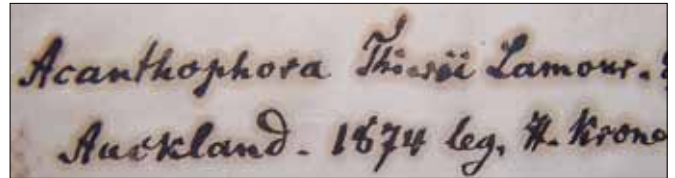 Acanthophora Thierii Lamour.
Auckland. 1874 leg. H. Krone